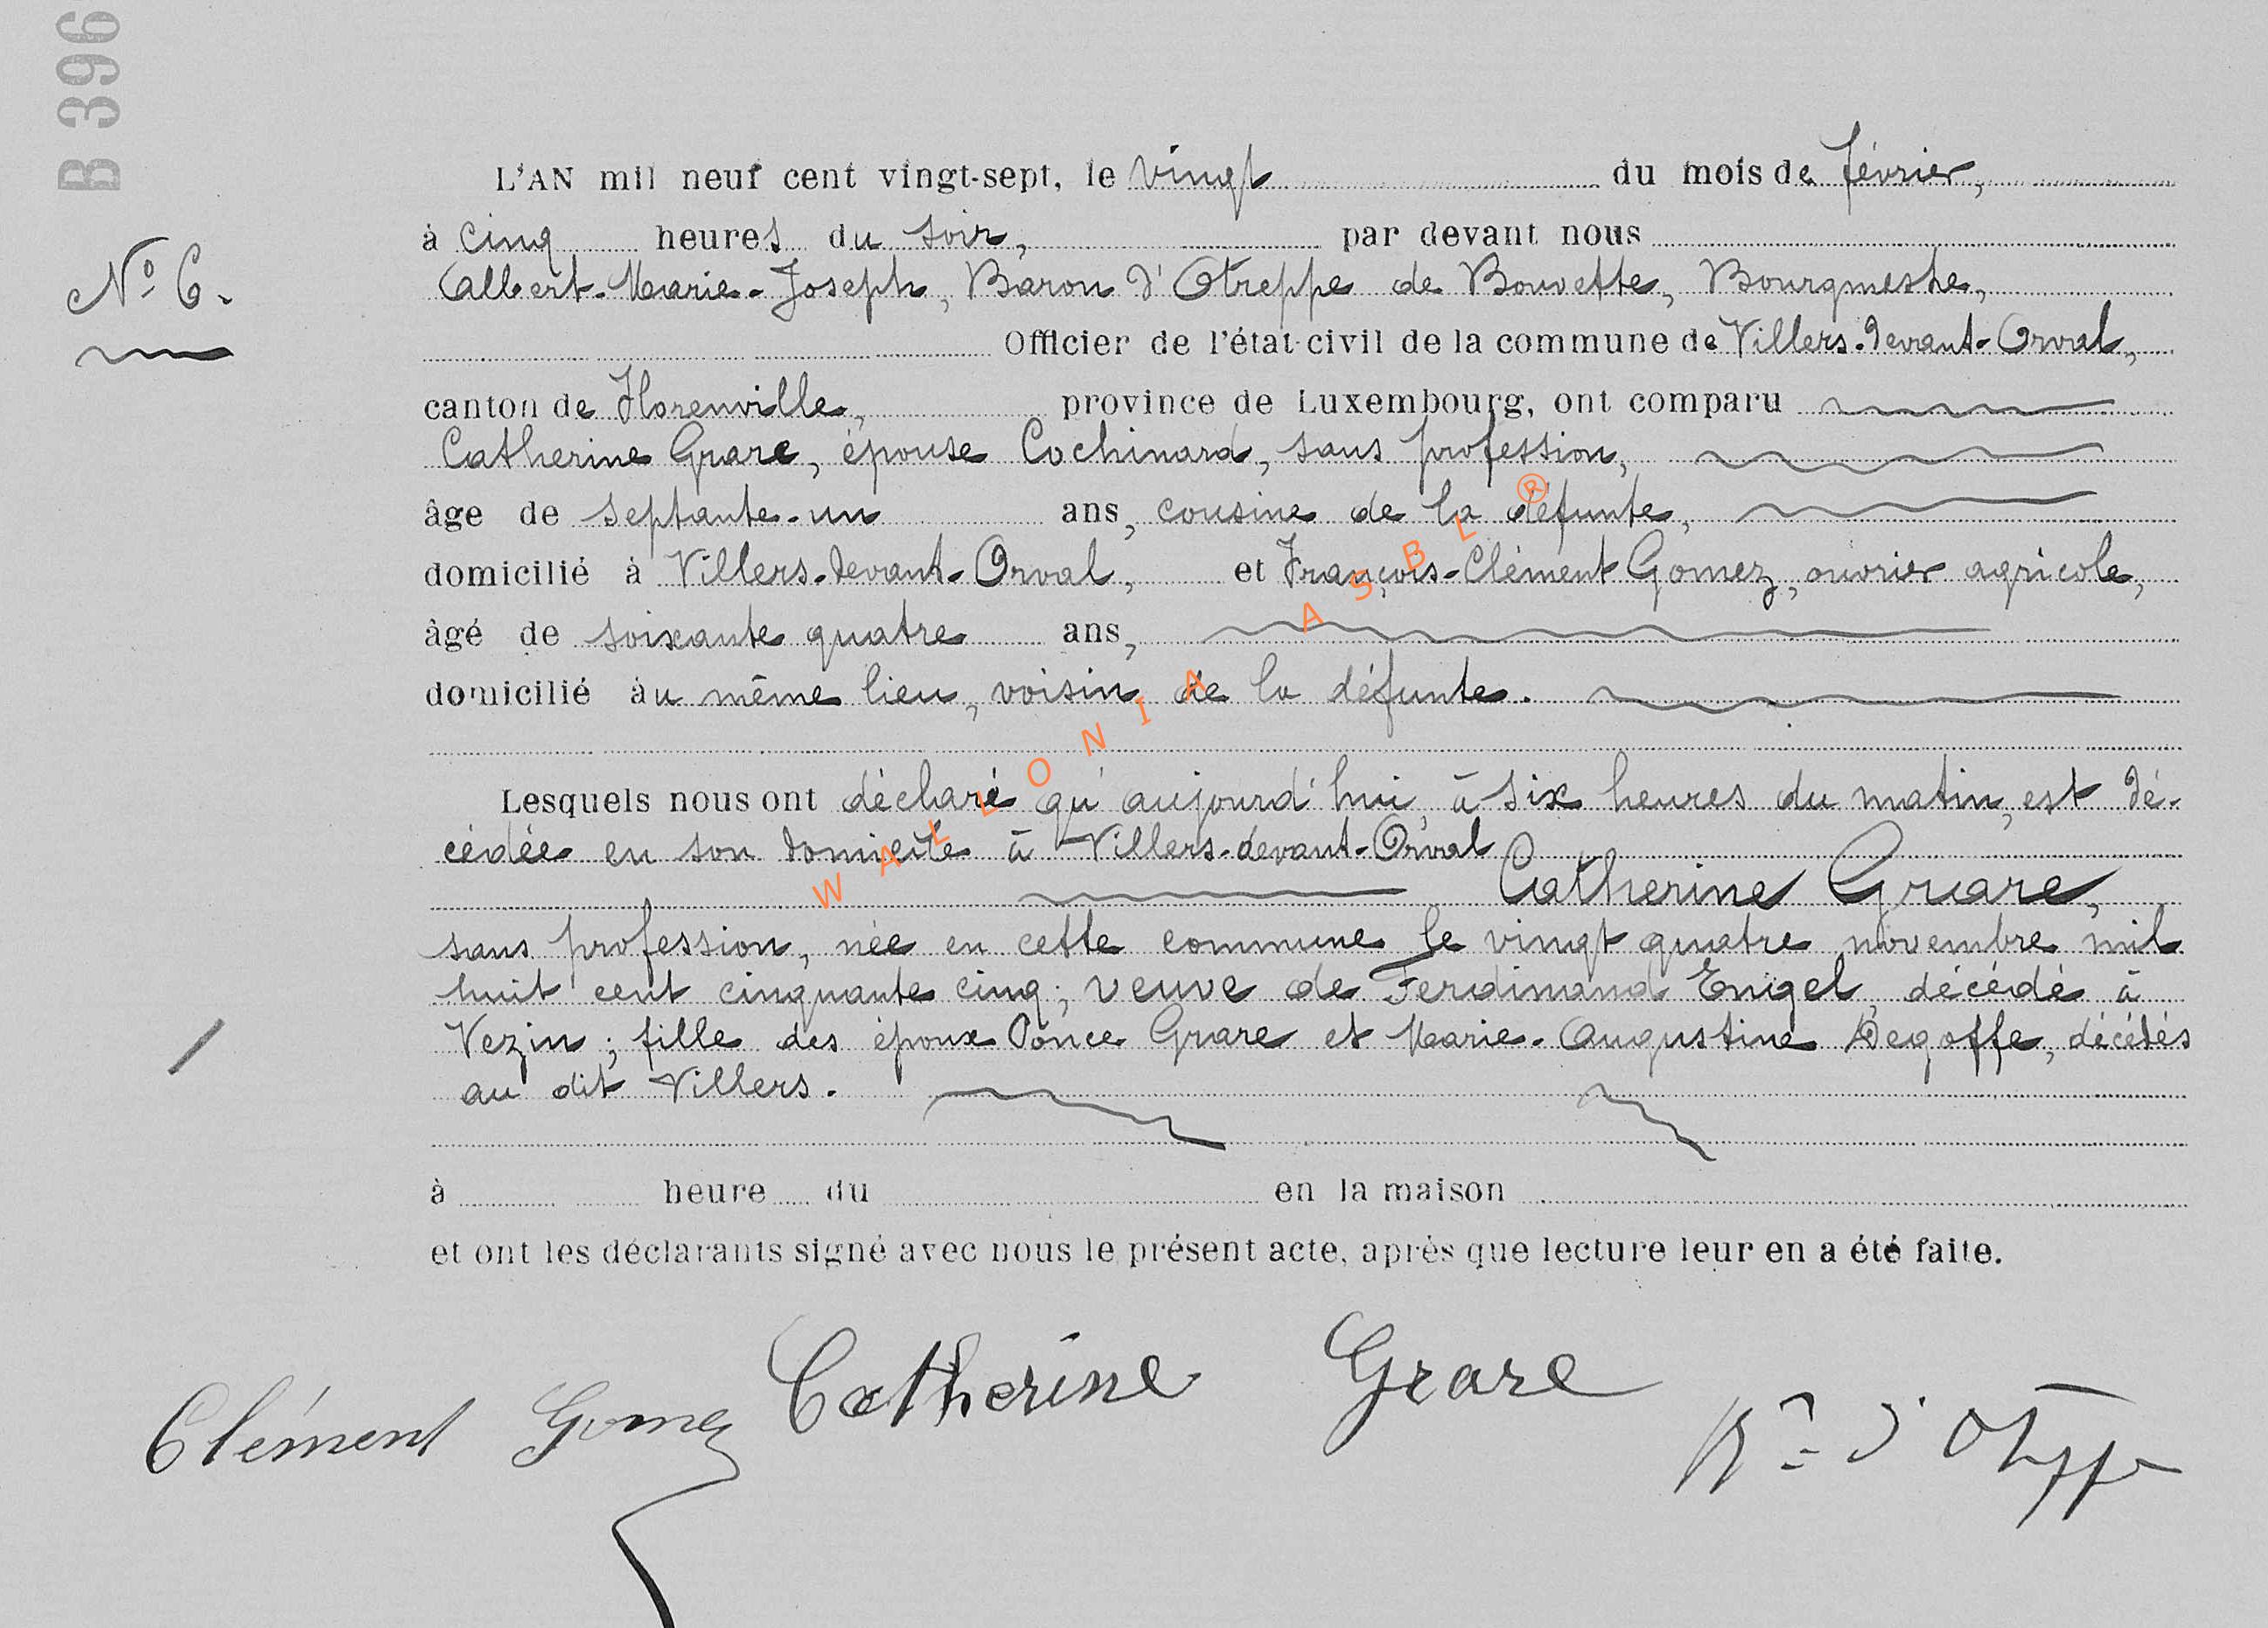 B 396
L'AN mil neuf cent vingt-sept, le vingt du mois de février,
à cinq heures du soir, par devant nous
N° 6.
Albert-Marie-Joseph, Baron d'Otreppe de Bouvette, Bourgmestre,
Officier de l'état civil de la commune de Villers-devant-Orval,
canton de Florenville, province de Luxembourg, ont comparu
Catherine Grare, épouse Cochinard, sans profession,
âge de septante-un ans, cousine de la défunte,
domicilié à Villers-devant-Orval, et François-Clément Gomez, ouvrier agricole,
âgé de soixante quatre ans,
domicilié au même lieu, voisin de la défunte.
Lesquels nous ont déclaré qu'aujourd'hui, à six heures du matin, est dé-
cédée en son domicile à Villers-devant-Orval
Catherine Grare,
sans profession, née en cette commune le vingt quatre novembre mil
huit cent cinquante cinq; veuve de Ferdinand Engel, décédé à
Vezin; fille des époux Ponce Grare et Marie-Augustine Degoffe, décédés
au dit Villers.
à heure du en la maison
et ont les déclarants signé avec nous le présent acte, après que lecture leur en a été faite.
Clément Gomez Catherine Grare Bon d'Otreppe
WALLONIA ASBL ®